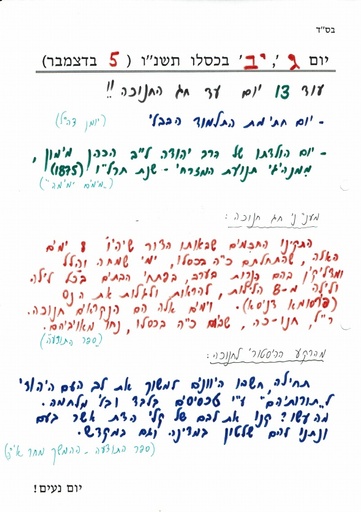 בס"ד
יום ג', י"ב' בכסלו תשנ"ו ( 5 בדצמבר)
עוד 13 יום עד חג החנוכה !!
- יום חתימת התלמוד הבבלי (יומן צה"ל)
- יום הולדתו של הרב יהודה ל"ב הכהן מימון,
ממנהיגי תנועת המזרחי - שנת תרל"ו (1875)
מעניני חג חנוכה:
התקינו החכמים שבאותו הדור שיהיו 8 ימים
האלה, שהתחלתם כ"ה בכסלו, ימי שמחה והלל
ומדליקין בהם הנרות בערב, בפתחי הבתים בכל לילה
ולילה מ-8 הלילות, להראות ולגלות את הנס
(פרסומא דניסא). וימים אלה הם הנקראים חנוכה.
ר"ל, חנו-כה, שביום כ"ה בכסלו, נחו מאויביהם.
(ספר התודעה)
מהרקע ההיסטורי לחנוכה:
תחילה, חשבו היוונים למשוך את לב העם היהודי
ל"תורותיהם" ע"י טכסיסים בלבד ובלי מלחמה.
מה עשו? קנו את לבם של קלי הדעת אשר בעם
ונתנו להם שלטון במדינה וגם במקדש.
(ספר התודעה - המשך מחר אי"ה)
יום נעים!